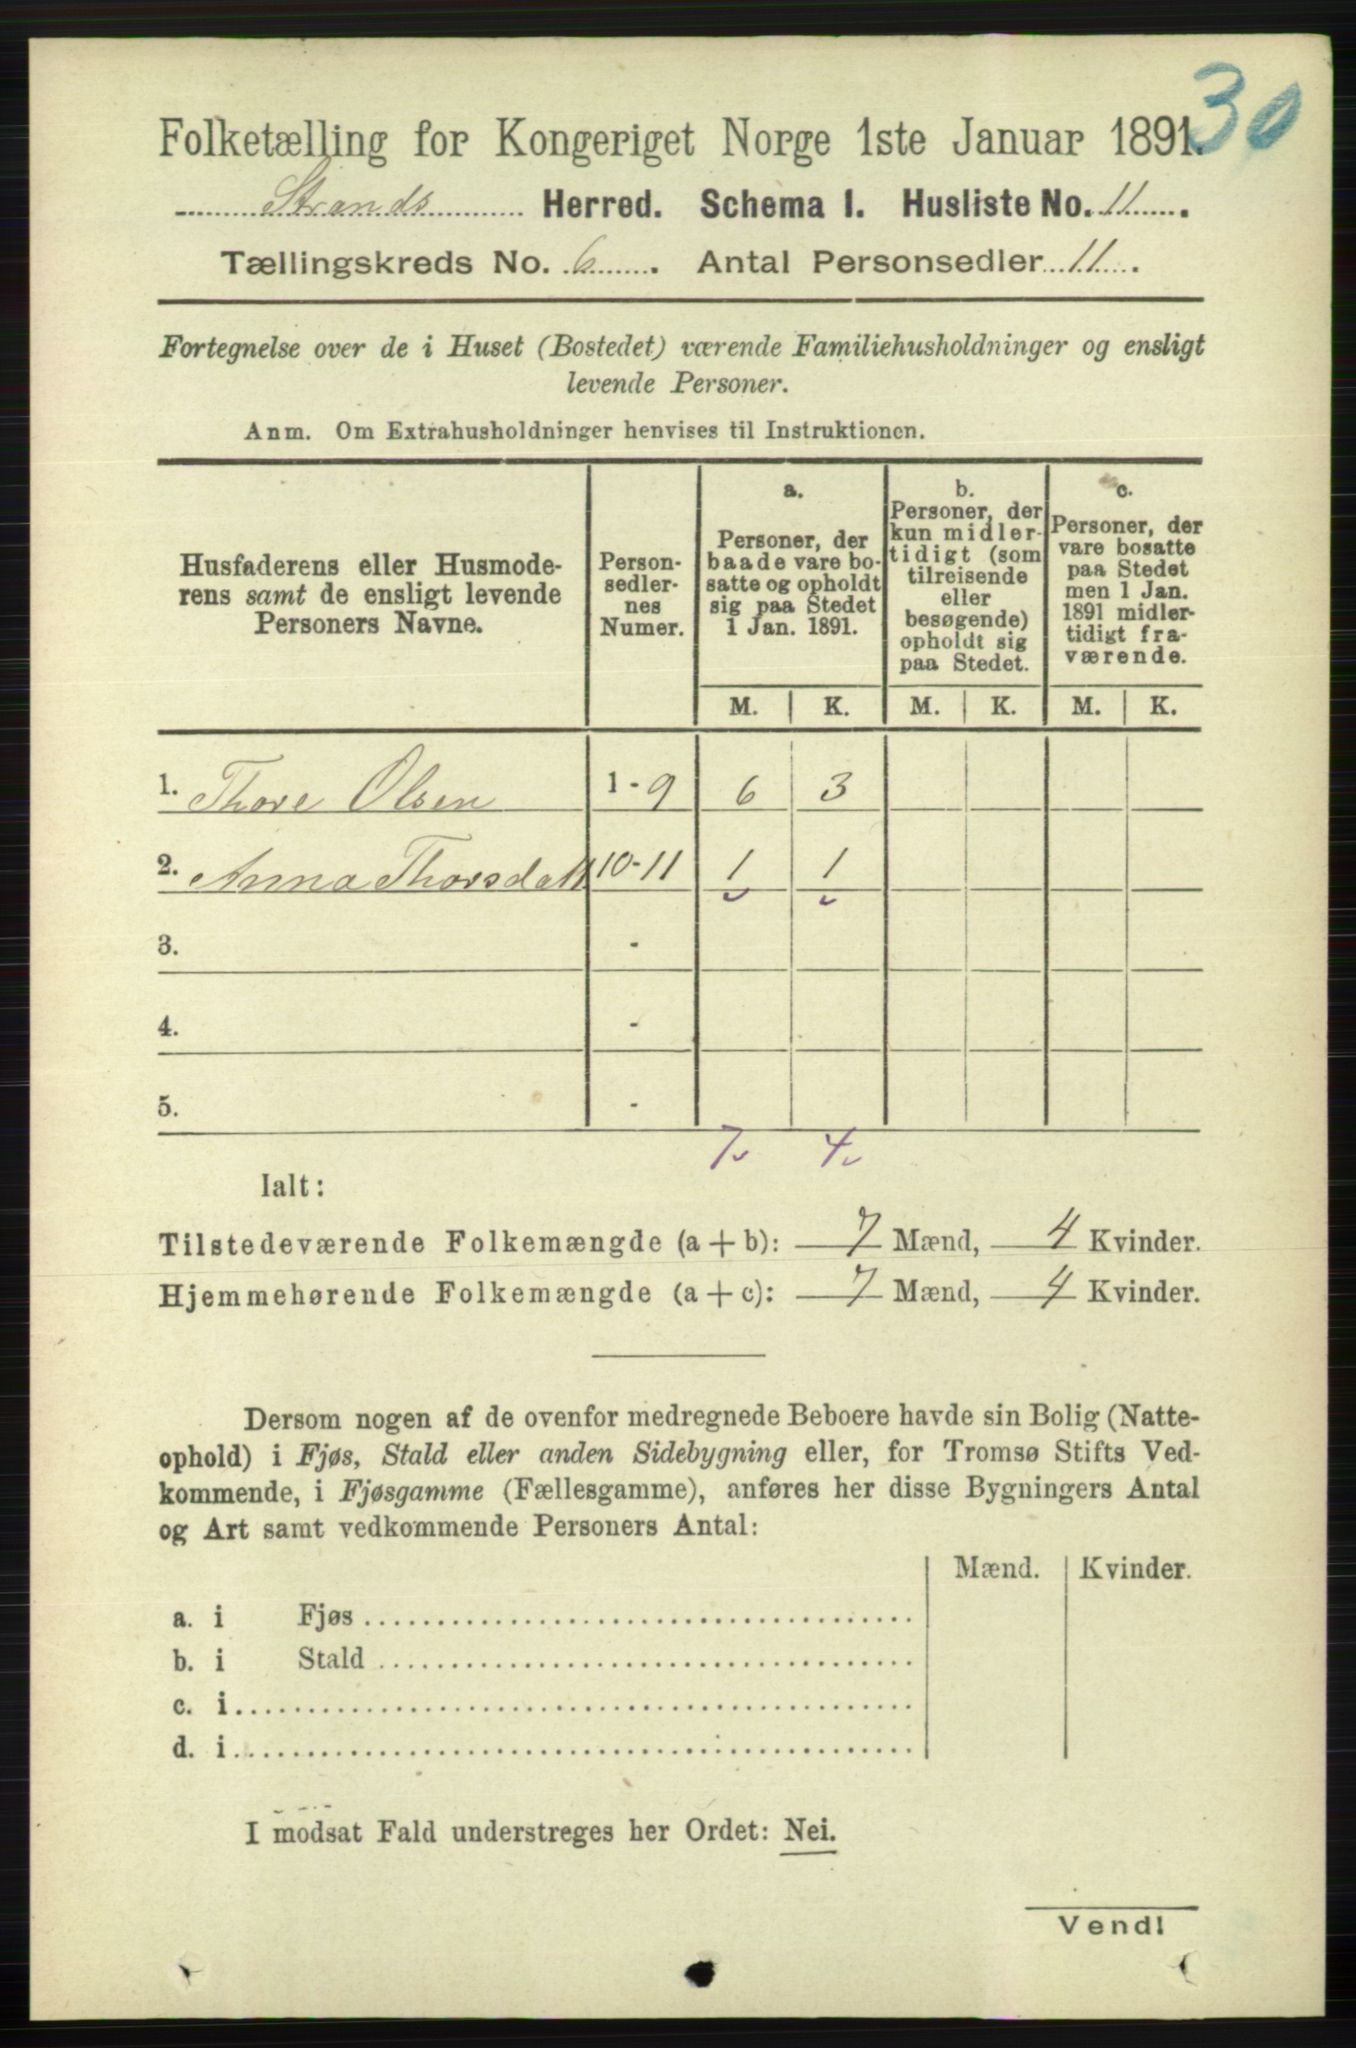 30
Folketælling for Kongeriget Norge 1ste Januar 1891.
Strands Herred. Schema I. Husliste No. 11.
Tællingskreds No. 6. Antal Personsedler 11.
Fortegnelse over de i Huset (Bostedet) værende Familiehusholdninger og ensligt
levende Personer.
Anm. Om Extrahusholdninger henvises til Instruktionen.
Husfaderens eller Husmode-
rens samt de ensligt levende
Personers Navne.
Person-
sedler-
nes
Numer.
a.
Personer, der
baade vare bo-
satte og opholdt
sig paa Stedet
1 Jan. 1891.
b.
Personer, der
kun midler-
tidigt (som
tilreisende
eller
besøgende)
opholdt sig
paa Stedet.
c.
Personer, der
vare bosatte
paa Stedet
men 1 Jan.
1891 midler-
tidigt fra-
værende.
M. K. M. K. M. K.
1. Thore Olsen 1 - 9 6 3
2. Anna Thorsdatt 10-11 1 1
3. -
4. -
5. -
7 4
Ialt:
Tilstedeværende Folkemængde (a + b): 7 Mænd, 4 Kvinder.
Hjemmehørende Folkemængde (a + c): 7 Mænd, 4 Kvinder.
Dersom nogen af de ovenfor medregnede Beboere havde sin Bolig (Natte-
ophold) i Fjøs, Stald eller anden Sidebygning eller, for Tromsø Stifts Ved-
kommende, i Fjøsgamme (Fællesgamme), anføres her disse Bygningers Antal
og Art samt vedkommende Personers Antal:
Mænd. Kvinder.
a. i Fjøs
b. i Stald
c. i
d. i
I modsat Fald understreges her Ordet: Nei.
Vend!